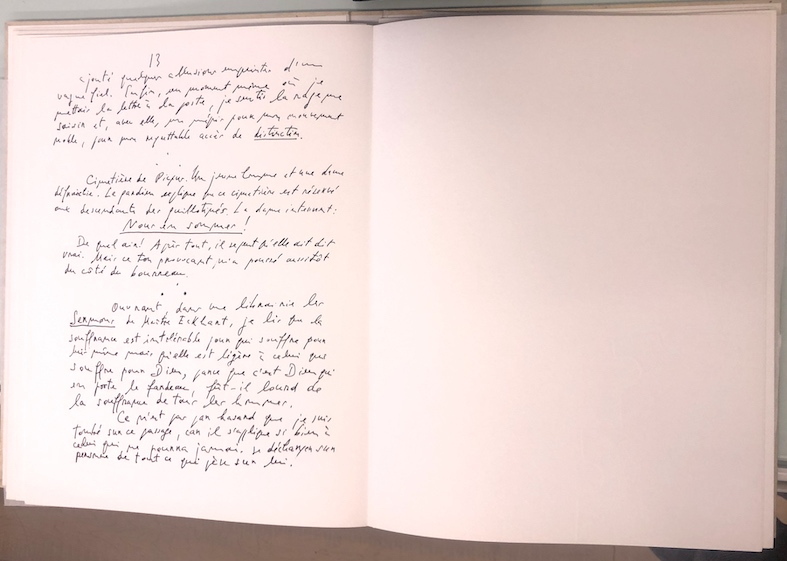 13
ajouté quelques allusions empreintes d'un
vague fiel. Enfin, au moment même où je
mettais la lettre à la poste, je sentis la rage me
saisir et, avec elle, un mépris pour mon mouvement
noble, pour mon regrettable accès de distinction.
Cimetière de Picpus. Un jeune homme et une dame
défraîchie. Le gardien explique que ce cimetière est réservé
aux descendants des guillotinés. La dame intervient :
Nous en sommes !
De quel air ! Après tout, il se peut qu'elle ait dit
vrai. Mais ce ton provocant m'a poussé aussitôt
du côté du bourreau.
Ouvrant, dans une librairie les
Sermons de Maître Eckhart, je lis que la
souffrance est intolérable pour qui souffre pour
lui-même mais qu'elle est légère à celui qui
souffre pour Dieu, parce que c'est Dieu qui
en porte le fardeau, fût-il lourd de
la souffrance de tous les hommes.
Ce n'est pas par hasard que je suis
tombé sur ce passage, car il s'applique si bien à
celui qui ne pourra jamais se décharger sur
personne de tout ce qui pèse sur lui.